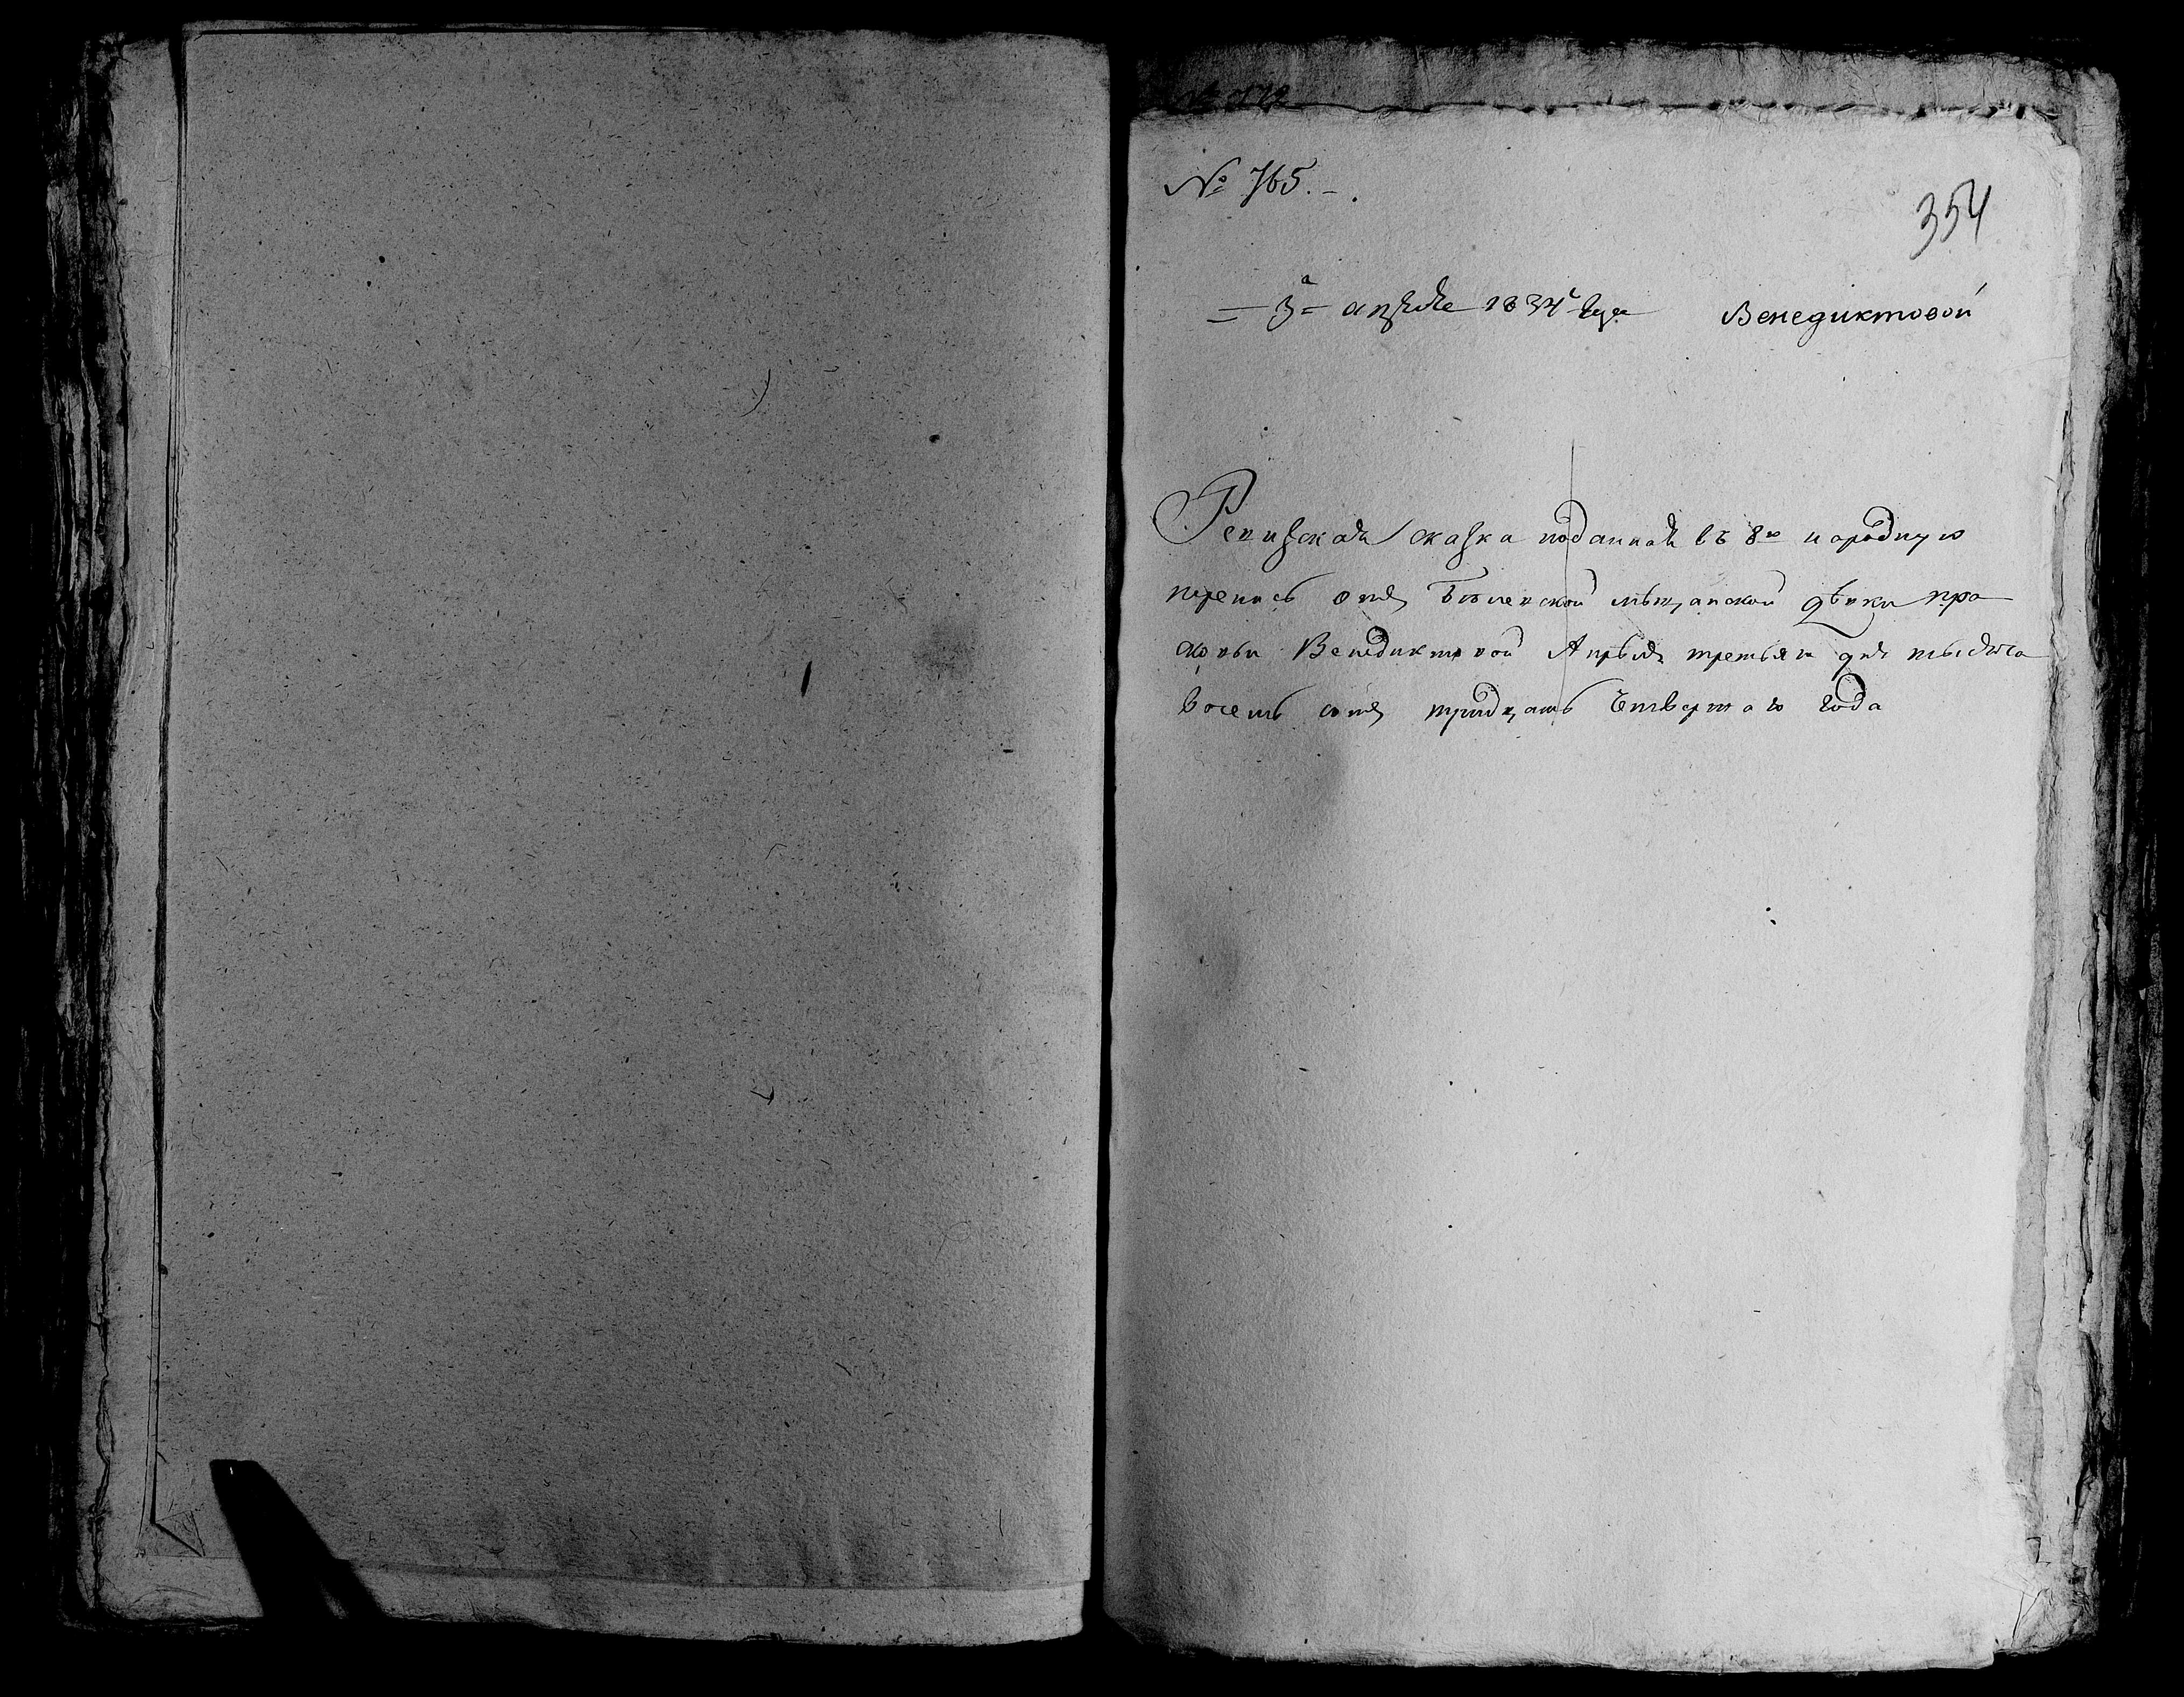 № 765.
354
3га апреля 1834 года Венедиктовой
Ревизская сказка поданная въ 8ю народную
перепись отъ Белевской мѣщанской дѣвки Пра
сковьи Венедиктовой Апрѣля третьяго дня тысяча
восемь сотъ тридцать четвертаго года